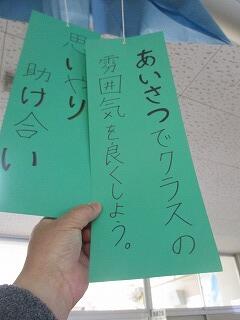 あいさつでクラスの
雰囲気を良くしよう。
思いやり
助け合い